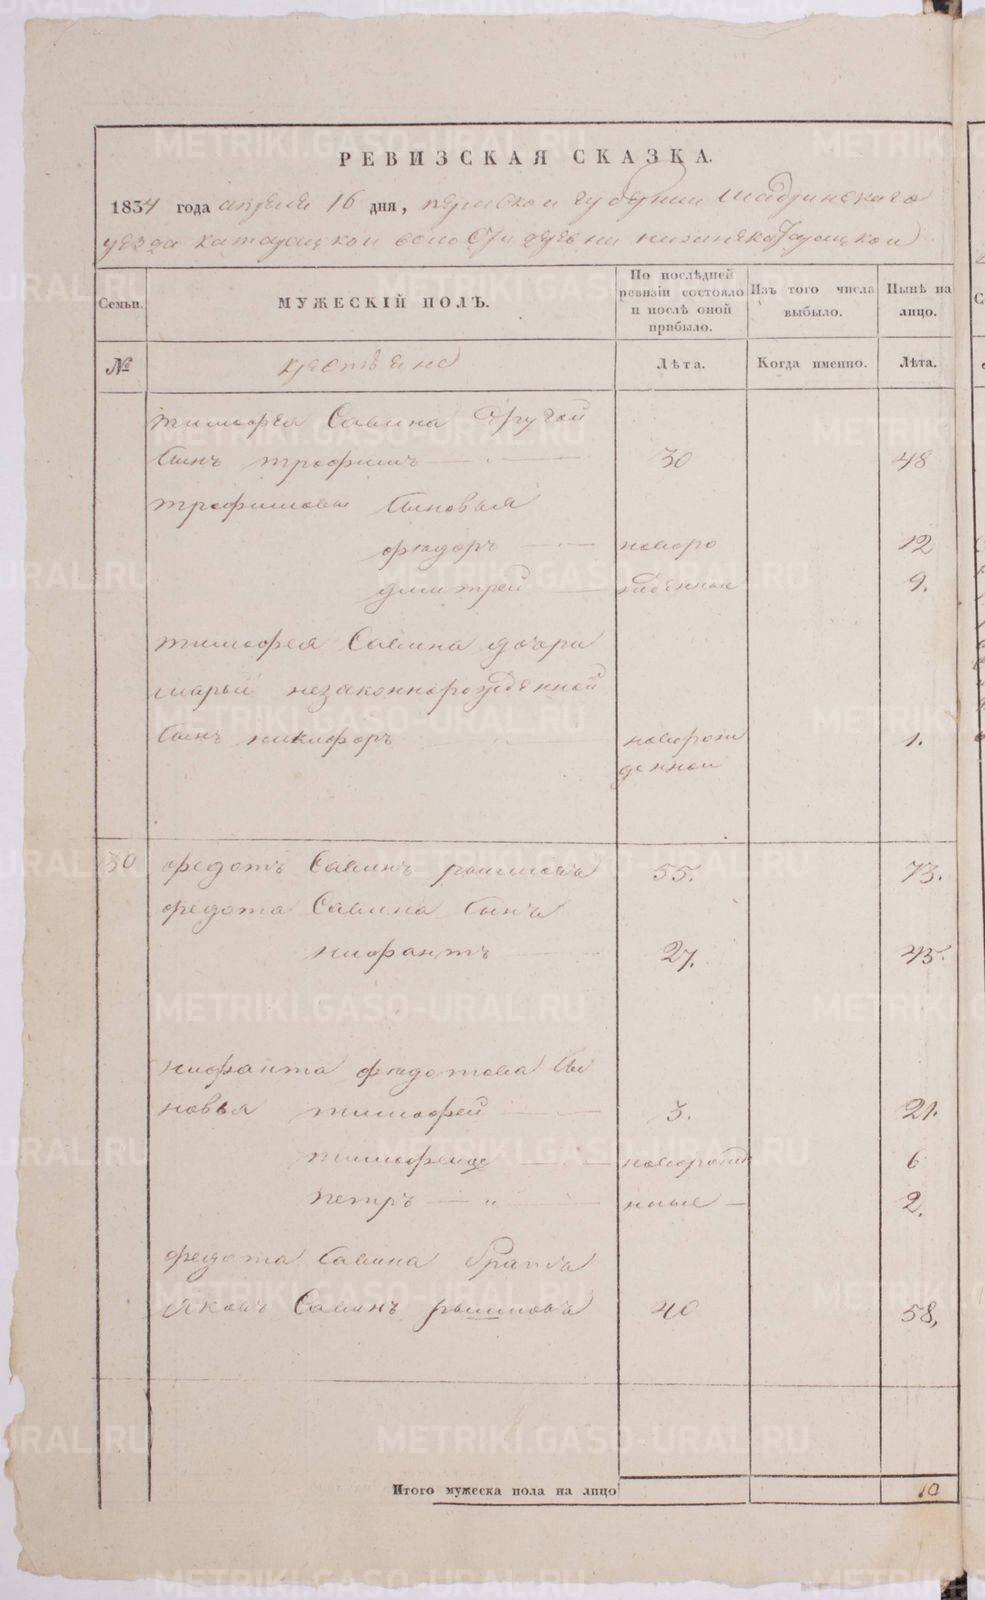 РЕВИЗСКАЯ СКАЗКА.
1834 года апреля 16 дня, пермской губернии шадринского
уезда катайской волости деревни нижнекатайской
Семьи. МУЖЕСКІЙ ПОЛЪ. По послѣдней ревизіи состояло и послѣ оной прибыло. Изъ того числа выбыло. Нынѣ на лицо.
№ крестьяне Лѣта. Когда именно. Лѣта.
тимофея Савина другой
сынъ трофимъ 30 48
трофимовы сыновья
фядоръ новоро 12
дмитрей жденные 9.
тимофея Савина дочери
марьи незаконнорожденной
сынъ никифоръ новорож 1.
денной
30 федотъ Савинъ 55. 73.
федота Савина сынъ
нифантъ 27. 45.
нифанта фядотова сы
новья тимофей 3. 21.
тимофей же новорожде 6
петръ нные 2.
федота Савина братъ
яковъ Савинъ 40 58,
Итого мужеска пола на лицо 10
METRIKI.GASO-URAL.RU